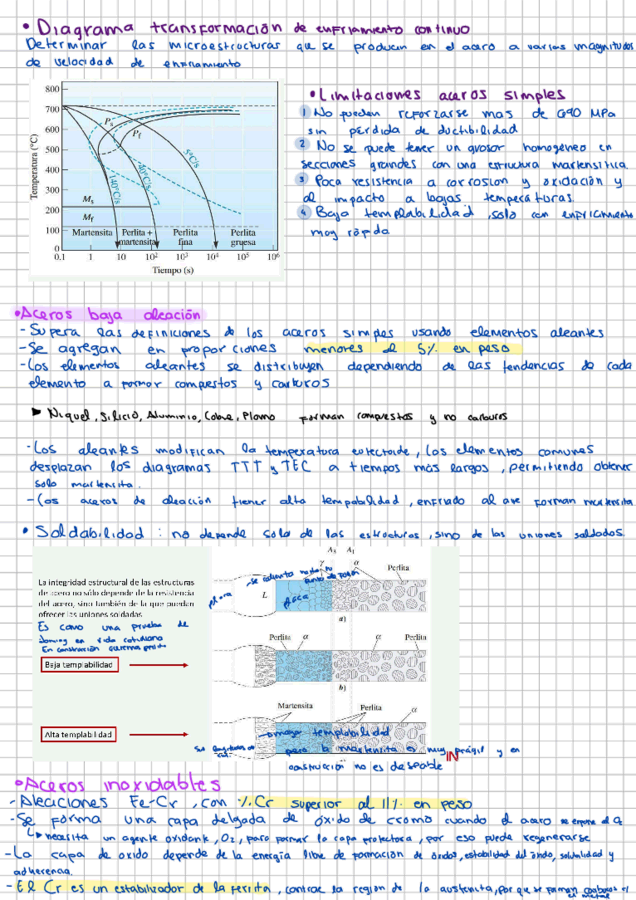 • Diagrama transformación de enfriamiento continuo
Determinar las microestructuras que se producen en el acero a varias magnitudes
de velocidad de enfriamiento
800
700
600
500
400
300
200
100
0
0.1 1 10 10² 10³ 10⁴ 10⁵ 10⁶
Temperatura (°C)
Tiempo (s)
Ps
Pf
140°C/s
40°C/s
5°C/s
Ms
Mf
Martensita
Perlita +
martensita
Perlita
fina
Perlita
gruesa
• Limitaciones aceros simples
1 No pueden reforzarse mas de 690 MPa
sin perdida de ductibilidad
2 No se puede tener un grosor homogéneo en
secciones grandes con una estructura martensitica.
3 Poca resistencia a corrosion y oxidación y
al impacto a bajas temperaturas.
4 Baja templabilidad, solo con enfriamiento
muy rápido
• Aceros baja aleación
- Supera las definiciones de los aceros simples usando elementos aleantes
- Se agregan en proporciones menores al 5% en peso
- Los elementos aleantes se distribuyen dependiendo de las tendencias de cada
elemento a formar compuestos y carburos
Niquel, Silicio, Aluminio, Cobre, Plomo forman compuestos y no carburos
- Los aleantes modifican la temperatura eutectoide, los elementos comunes
desplazan los diagramas TTT y TEC a tiempos más largos, permitiendo obtener
solo martensita.
- Los aceros de aleación tienen alta templabilidad, enfriado al aire forman martensita
• Soldabilidad : no depende solo de las estructuras, sino de las uniones soldadas
La integridad estructural de las estructuras
de acero no sólo depende de la resistencia
del acero, sino también de la que puedan
ofrecer las uniones soldadas.
Es como una prueba de
Jominy en vida cotidiana
Baja templabilidad
Alta templabilidad
A3 A1
γ α Perlita
L
placa
a)
Perlita α α Perlita
b)
Martensita Perlita α
mayor templabilidad
pero la martensita es muy frágil y en
construcción no es deseable
IN
• Aceros inoxidables
- Aleaciones Fe-Cr, con %Cr superior al 11% en peso
- Se forma una capa delgada de óxido de cromo cuando el acero se expone al O2
necesita un agente oxidante, O2, para formar la capa protectora, por eso puede regenerarse
- La capa de oxido depende de la energía libre de formación de óxidos, estabilidad del óxido, solubilidad y
adherencia.
- El Cr es un estabilizador de la ferrita, contrae la region de la austenita, por que se forman carburos